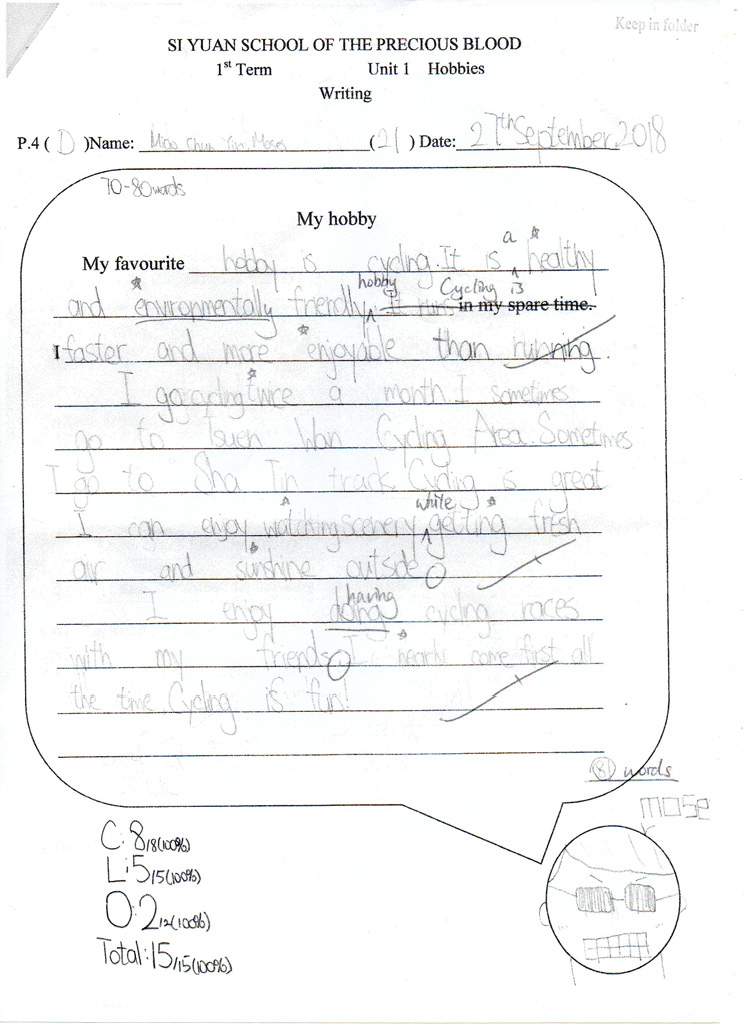 Keep in folder
SI YUAN SCHOOL OF THE PRECIOUS BLOOD
1st Term Unit 1 Hobbies
Writing
P.4 ( D )Name: Miao Chun Yin, Moses (21) Date: 27th September, 2018
70-80 words
My hobby
a
My favourite hobby is cycling. It is healthy
hobby Cycling is
and environmentally friendly. It runs in my spare time.
I faster and more enjoyable than running.
I go cycling twice a month. I sometimes
go to Tsuen Wan Cycling Area. Sometimes
I go to Sha Tin track. Cycling is great
while
I can enjoy watching scenery getting fresh
air and sunshine outside
having
I enjoy doing cycling races
with my friends. I nearly come first all
the time. Cycling is fun!
81 words
mose
C: 8/8(100%)
L: 5/5(100%)
O: 2/2(100%)
Total: 15/15(100%)